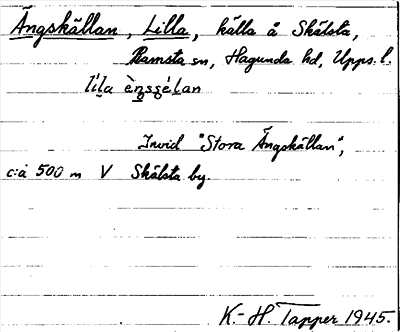 Ängskällan, Lilla, källa å Skälsta,
Ramsta sn, Hagunda hd, Upps. l.
lila
Invid "Stora Ängskällan",
c:a 500 m V Skälsta by.
K.-H. Tapper 1945.